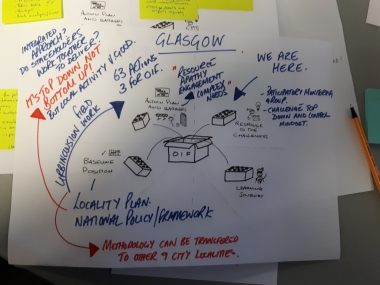 ACTION PLAN
AND GARDENS
GLASGOW
INTEGRATED
APPROACH?
DO STAKEHOLDERS
WORK TOGETHER
TO DELIVER?
IT'S TOP DOWN NOT
BOTTOM UP!
BUT LOCAL ACTIVITY V GOOD.
63 ACTIONS
3 FOR OIF.
"RESOURCE
APATHY
ENGAGEMENT
COMPLEX
NEEDS"
WE ARE
HERE.
PARTICIPATORY MONITORING
GROUP.
- CHALLENGE TOP
DOWN AND CONTROL
MINDSET.
URBINCLUSION FOOD
WORK
ACTION PLAN
RESPONSE TO THE
CHALLENGES
BASELINE
POSITION
OIF
LEARNING
JOURNEY
LOCALITY PLAN.
NATIONAL POLICY/FRAMEWORK
METHODOLOGY CAN BE TRANSFERED
TO OTHER 9 CITY LOCALITIES.